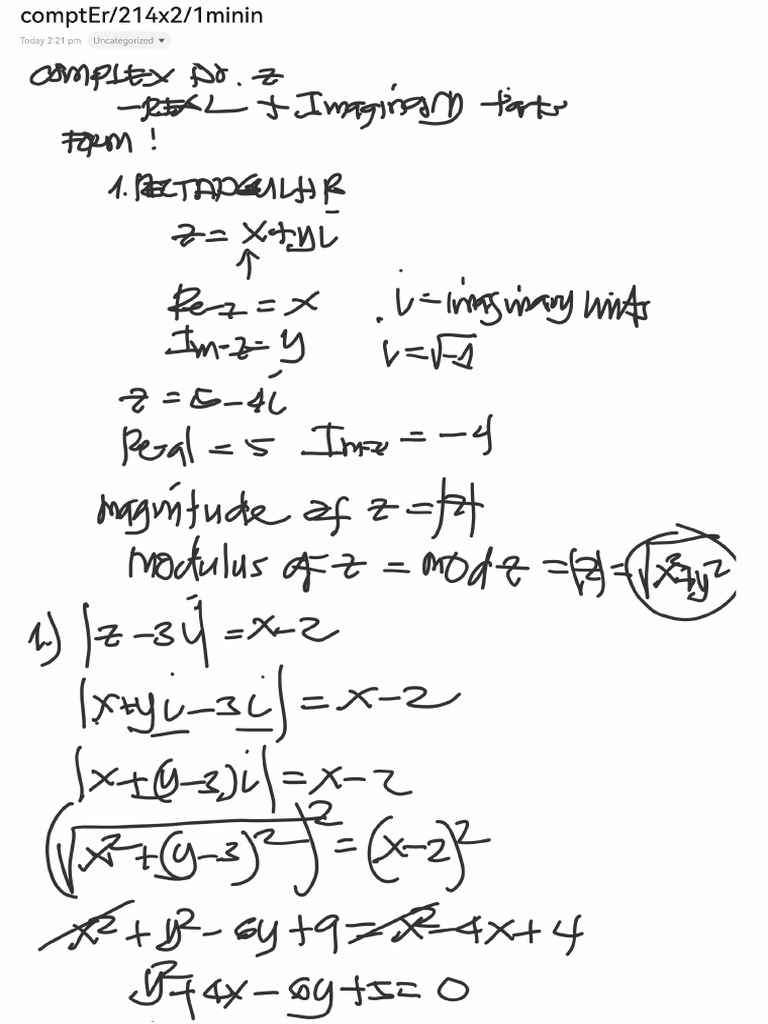 comptEr/214x2/1minin
Today 2:21 pm Uncategorized
COMPLEX No. z
-REAL + Imaginary Parts
Form !
1. RECTANGULAR
z = x+yi
↑
Re z = x . i = imaginary units
Im z = y i = √-1
z = 5-4i
Real = 5 Im z = -4
magnitude of z = |z|
modulus of z = mod z = |z| = √x²+y²
1.) |z-3i| = x-2
|x+yi-3i| = x-2
|x+(y-3)i| = x-2
(√x²+(y-3)²)² = (x-2)²
x²+y²-6y+9 = x²-4x+4
y²+4x-6y+5=0